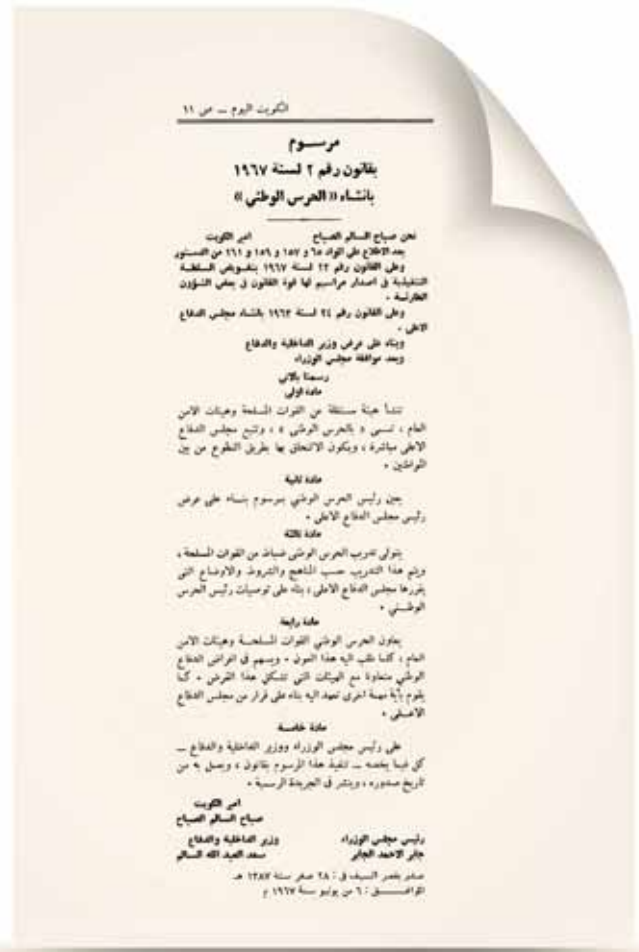 الكويت اليوم — ص ١١
مرســوم
بقانون رقم ٢ لسنة ١٩٦٧
بانشاء «الحرس الوطني»
نحن صباح السالم الصباح امير الكويت
بعد الاطلاع على المواد ٦٥ و ١٥٧ و ١٥٩ و ١٦١ من الدستور
وعلى القانون رقم ١٣ لسنة ١٩٦٧ بتفويض السلطة
التنفيذية في اصدار مراسيم لها قوة القانون في بعض الشؤون
الطارئة ٠
وعلى القانون رقم ٢٤ لسنة ١٩٦٣ بانشاء مجلس الدفاع
الاعلى ٠
وبناء على عرض وزير الداخلية والدفاع
وبعد موافقة مجلس الوزراء
رسمنا بالاتي
مادة اولى
تنشأ هيئة مستقلة عن القوات المسلحة وهيئات الامن
العام ، تسمى « بالحرس الوطني » ، وتتبع مجلس الدفاع
الاعلى مباشرة ، ويكون الالتحاق بها بطريق التطوع من بين
المواطنين ٠
مادة ثانية
يعين رئيس الحرس الوطني بمرسوم بنـاء على عرض
رئيس مجلس الدفاع الاعلى ٠
مادة ثالثة
يتولى تدريب الحرس الوطني ضباط من القوات المسلحة ،
ويتم هذا التدريب حسب المناهج والشروط والاوضاع التي
يقررها مجلس الدفاع الاعلى ، بناء على توصيات رئيس الحرس
الوطنـي ٠
مادة رابعة
يعاون الحرس الوطني القوات المسلحــة وهيئات الامن
العام ، كلما طلب اليه هذا العون ٠ ويسهم في اغراض الدفاع
الوطني متعاونا مع الهيئات التي تتشكل لهذا الغرض ٠ كمـا
يقوم بأية مهمة اخرى تعهد اليه بناء على قرار من مجلس الدفاع
الاعــلى ٠
مادة خامسة
على رئيس مجلس الوزراء ووزير الداخلية والدفاع —
كل فيما يخصه — تنفيذ هذا المرسوم بقانون ، ويعمل به من
تاريخ صدوره ، وينشر في الجريدة الرسمية ٠
امير الكويت
صباح السالم الصباح
رئيس مجلس الوزراء وزير الداخلية والدفاع
جابر الاحمد الجابر سعد العبد الله السالم
صدر بقصر السيف في : ٢٨ صفر سنة ١٣٨٧ هـ
الموافــــق : ٦ من يونيو سنة ١٩٦٧ م